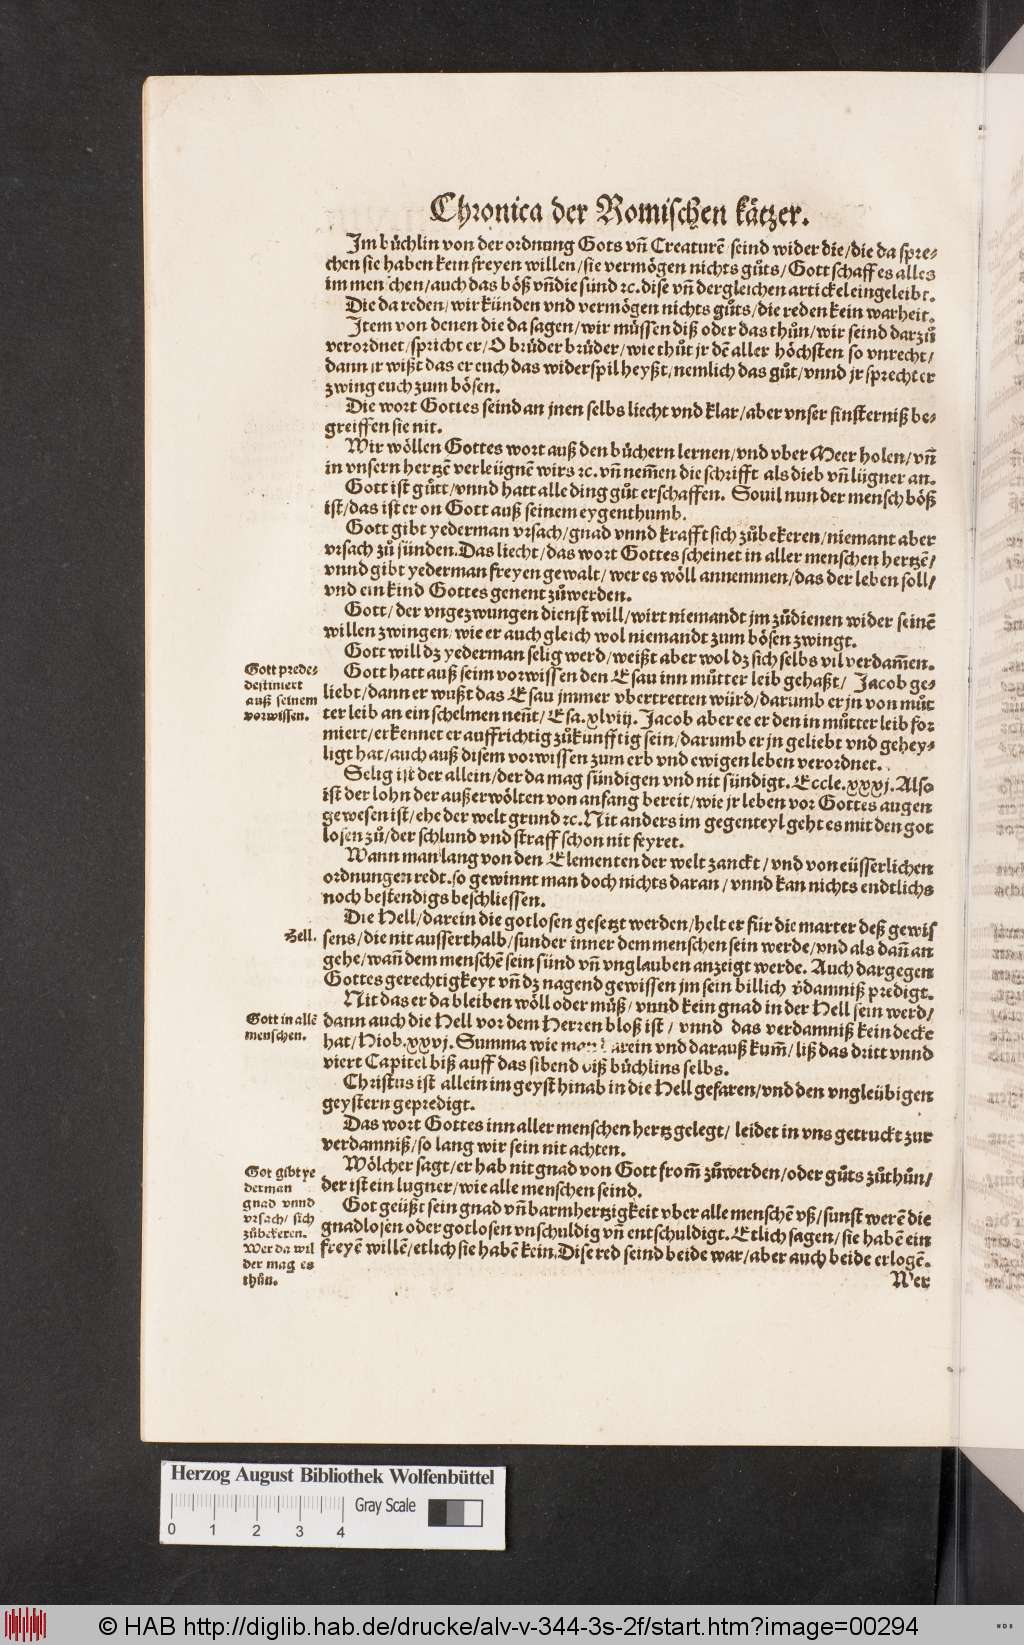 Chronica der Romischen kätzer.
Im bůchlin von der ordnung Gots vñ Creaturẽ seind wider die/die da spre-
chen sie haben kein freyen willen/sie vermögen nichts gůts/Gott schaff es alles
im menschen/auch das böß vñ die sünd ꝛc. dise vñ dergleichen artickel eingeleibt.
Die da reden/wir künden vnd vermögen nichts gůts/die reden kein warheit.
Item von denen die da sagen/wir můssen diß oder das thůn/wir seind darzů
verordnet/spricht er/O brůder brůder/wie thůt jr dẽ aller höchsten so vnrecht/
dann ir wißt das er euch das widerspil heyßt/nemlich das gůt/vnnd jr sprecht er
zwing euch zum bösen.
Die wort Gottes seind an jnen selbs liecht vnd klar/aber vnser finsterniß be-
greiffen sie nit.
Wir wöllen Gottes wort auß den bůchern lernen/vnd vber Meer holen/vñ
in vnsern hertzẽ verleügnẽ wirs ꝛc. vñ nem̃en die schrifft als dieb vñ lügner an.
Gott ist gůtt/vnnd hatt alle ding gůt erschaffen. Souil nun der mensch böß
ist/das ist er on Gott auß seinem eygenthumb.
Gott gibt yederman vrsach/gnad vnnd krafft sich zůbekeren/niemant aber
vrsach zů sünden. Das liecht/das wort Gottes scheinet in aller menschen hertzẽ/
vnnd gibt yederman freyen gewalt/wer es wöll annemmen/das der leben soll/
vnd ein kind Gottes genent zůwerden.
Gott/der vngezwungen dienst will/wirt niemandt jm zůdienen wider seinẽ
willen zwingen/wie er auch gleich wol niemandt zum bösen zwingt.
Gott will dz yederman selig werd/weißt aber wol dz sich selbs vil verdam̃en.
Gott prede-
destiniert
auß seinem
vorwissen.
Gott hatt auß seim vorwissen den Esau inn můtter leib gehaßt/ Jacob ge-
liebt/dann er wußt das Esau jmmer vbertretten würd/darumb er jn von můt
ter leib an ein schelmen neñt/Esa. xlviij. Jacob aber ee er den in můtter leib for
miert/erkennet er auffrichtig zůkunfftig sein/darumb er jn geliebt vnd gehey-
ligt hat/auch auß disem vorwissen zum erb vnd ewigen leben verordnet.
Selig ist der allein/der da mag sündigen vnd nit sündigt. Eccle. xxxj. Also
ist der lohn der außerwölten von anfang bereit/wie jr leben vor Gottes augen
gewesen ist/ehe der welt grund ꝛc. Nit anders im gegenteyl geht es mit den got
losen zů/der schlund vnd straff schon nit feyret.
Wann man lang von den Elementen der welt zanckt/vnd von eüsserlichen
ordnungen redt. so gewinnt man doch nichts daran/vnnd kan nichts endtlichs
noch bestendigs beschliessen.
Hell.
Die Hell/darein die gotlosen gesetzt werden/helt er für die marter deß gewis
sens/die nit ausserthalb/sunder inner dem menschen sein werde/vnd als dañ an
gehe/wañ dem menschẽ sein sünd vñ vnglauben anzeigt werde. Auch dargegen
Gottes gerechtigkeyt vñ dz nagend gewissen jm sein billich v̊damniß predigt.
Nit das er da bleiben wöll oder můß/vnnd kein gnad in der Hell sein werd/
Gott in allẽ
menschen.
dann auch die Hell vor dem Herren bloß ist/vnnd das verdamniß kein decke
hat/Hiob. xxvj. Summa wie man darein vnd darauß kum̃/liß das dritt vnnd
viert Capitel biß auff das sibend diß bůchlins selbs.
Christus ist allein im geyst hinab in die Hell gefaren/vnd den vngleübigen
geystern gepredigt.
Das wort Gottes inn aller menschen hertz gelegt/ leidet in vns getruckt zur
verdamniß/so lang wir sein nit achten.
Got gibt ye
derman
gnad vnnd
vrsach/sich
zůbekeren.
Wer da wil
der mag es
thůn.
Wölcher sagt/er hab nit gnad von Gott from̃ zůwerden/oder gůts zůthůn/
der ist ein lugner/wie alle menschen seind.
Got geüßt sein gnad vñ barmhertzigkeit vber alle menschẽ vß/sunst werẽ die
gnadlosen oder gotlosen vnschuldig vñ entschuldigt. Etlich sagen/sie habẽ ein
freyẽ willẽ/etlich sie habẽ kein. Dise red seind beide war/aber auch beide erlogẽ.
Wer
Herzog August Bibliothek Wolfenbüttel
Gray Scale
0 1 2 3 4
© HAB http://diglib.hab.de/drucke/alv-v-344-3s-2f/start.htm?image=00294